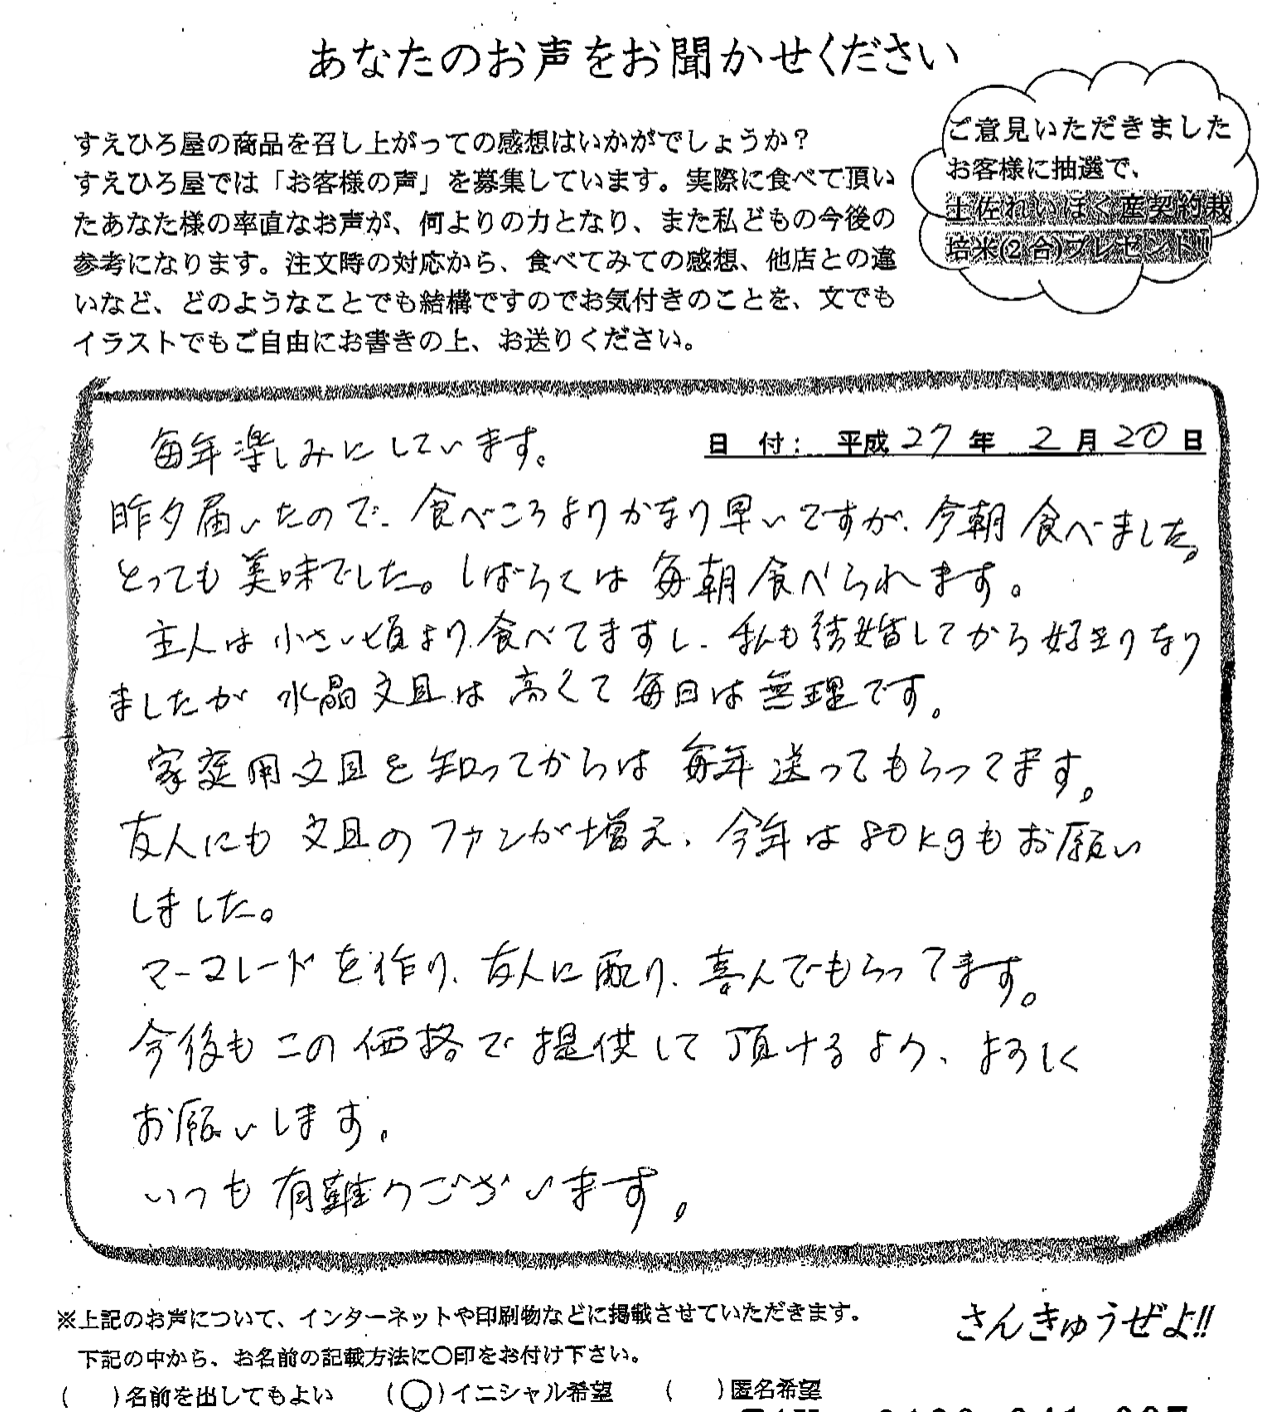 あなたのお声をお聞かせください
すえひろ屋の商品を召し上がっての感想はいかがでしょうか？
すえひろ屋では「お客様の声」を募集しています。実際に食べて頂い
たあなた様の率直なお声が、何よりの力となり、また私どもの今後の
参考になります。注文時の対応から、食べてみての感想、他店との違
いなど、どのようなことでも結構ですのでお気付きのことを、文でも
イラストでもご自由にお書きの上、お送りください。
ご意見いただきました
お客様に抽選で、
土佐れいほく産契約栽
培米(2合)プレゼント!!
日 付： 平成 27 年 2 月 20 日
毎年楽しみにしています。
昨夕届いたので、食べころよりかなり早いですが、今朝食べました。
とっても美味でした。しばらくは毎朝食べられます。
主人は小さい頃より食べてますし、私も結婚してから好きになり
ましたが水晶文旦は高くて毎日は無理です。
家庭用文旦を知ってからは毎年送ってもらってます。
友人にも文旦のファンが増え、今年は80kgもお願い
しました。
マーマレードを作り、友人に配り、喜んでもらってます。
今後もこの価格で提供して頂けるよう、よろしく
お願いします。
いつも有難うございます。
※上記のお声について、インターネットや印刷物などに掲載させていただきます。
下記の中から、お名前の記載方法に○印をお付け下さい。
さんきゅうぜよ!!
( )名前を出してもよい (○)イニシャル希望 ( )匿名希望